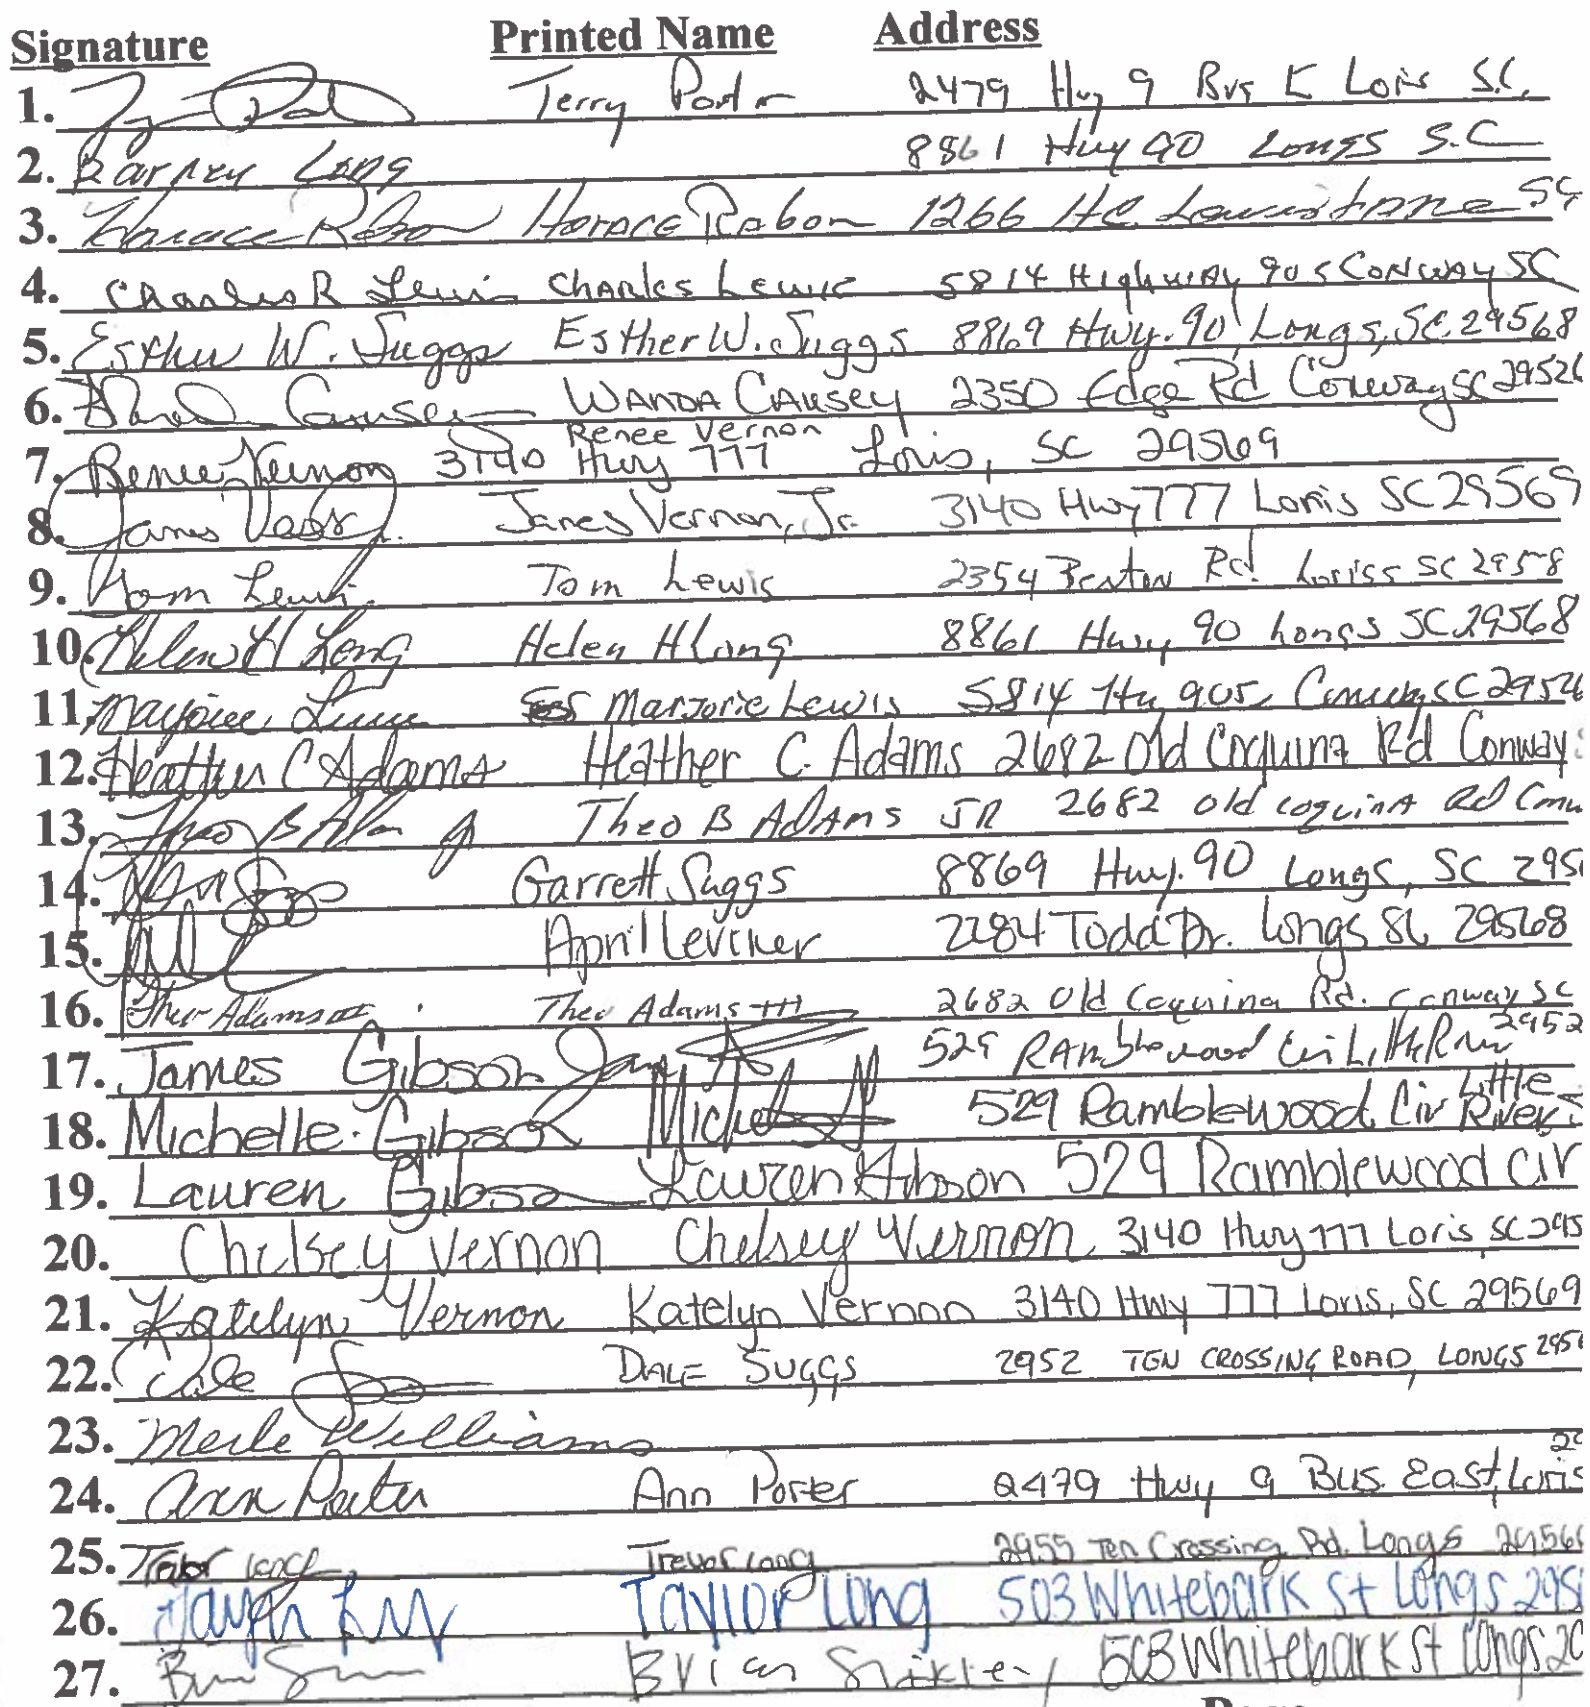 Signature Printed Name Address
1. Terry Porter 2479 Hwy 9 Bus E Loris S.C.
2. Barney Long 8861 Hwy 90 Longs S.C
3. Horace Rabon Horace Rabon 1266 H.C. Lewis Lane SC
4. Charles R Lewis Charles Lewis 5814 Highway 905 Conway SC
5. Esther W. Suggs Esther W. Suggs 8869 Hwy. 90, Longs, SC 29568
6. Wanda Causey WANDA CAUSEY 2350 Edge Rd Conway SC 29526
Renee Vernon
7. Renee Vernon 3140 Hwy 777 Loris, SC 29569
8. James Vernon, Jr. 3140 Hwy 777 Loris SC 29569
9. Tom Lewis Tom Lewis 2354 Rd. Loriss SC
10. Helen H Long Helen H Long 8861 Hwy 90 Longs SC 29568
11. Marjorie Lewis Marjorie Lewis 5814 Hw 905 Conway SC 2952
12. Heather C Adams Heather C. Adams 2682 Old Coquina Rd Conway
13. Theo B Theo B Adams JR 2682 old coquina Rd
14. Garrett Suggs 8869 Hwy. 90 Longs, SC 295
15. April 2284 Todd Dr. Longs SC 29568
16. Theo Adams III Theo Adams III 2682 Old Coquina Rd. Conway SC
2952
17. James Gibson 529 Ramblewood Cir Little River
18. Michelle Gibson 529 Ramblewood Cir Little River
19. Lauren Gibson Lauren Gibson 529 Ramblewood Cir
20. Chelsey Vernon Chelsey Vernon 3140 Hwy 777 Loris SC 295
21. Katelyn Vernon Katelyn Vernon 3140 Hwy 777 Loris, SC 29569
22. Dale DALE SUGGS 2952 TEN CROSSING ROAD, LONGS 295
23. Merle Williams
24. Ann Porter Ann Porter 2479 Hwy 9 Bus. East, Loris
25. Trevor Long 2955 Ten Crossing Rd. Longs 2956
26. Taylor Long 503 Whitebark St Longs 295
27. Brian 503 Whitebark St Longs